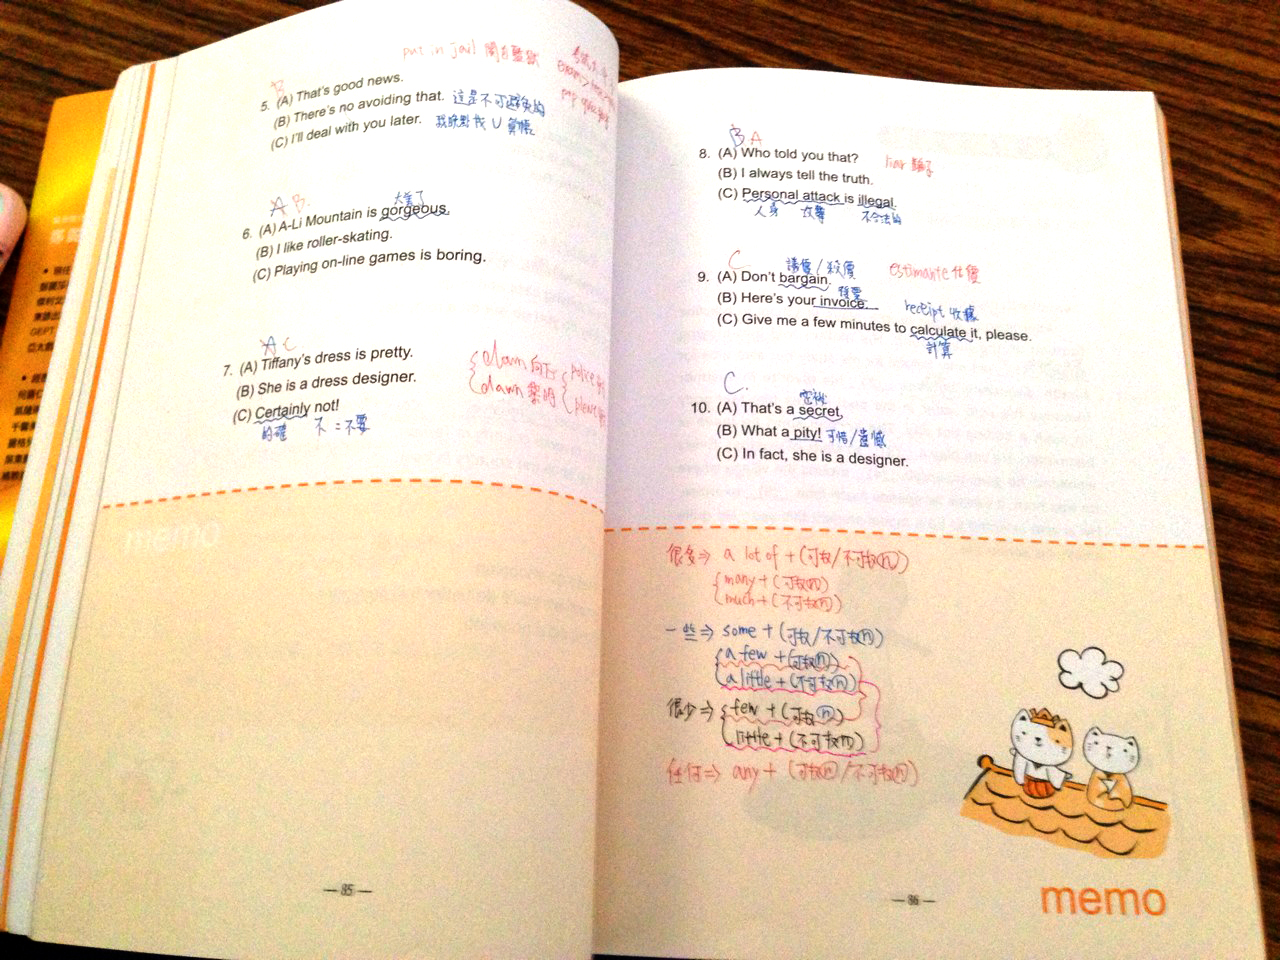 put in jail 關自監獄
B
5. (A) That's good news.
(B) There's no avoiding that. 這是不可避免的
(C) I'll deal with you later. 我晚點找 U 算帳
A B.
太美了
6. (A) A-Li Mountain is gorgeous.
(B) I like roller-skating.
(C) Playing on-line games is boring.
A C
7. (A) Tiffany's dress is pretty.
(B) She is a dress designer.
(C) Certainly not!
的確 不 = 不要
down 向下
dawn 黎明
memo
— 85 —
B A
8. (A) Who told you that? liar 騙子
(B) I always tell the truth.
(C) Personal attack is illegal.
人身 攻擊 不合法的
C 講價/殺價 estimante 估價
9. (A) Don't bargain.
發票
(B) Here's your invoice. receipt 收據
(C) Give me a few minutes to calculate it, please.
計算
C.
密秘
10. (A) That's a secret.
(B) What a pity! 可惜/遺憾
(C) In fact, she is a designer.
很多⇒ a lot of + (可数/不可数ⓝ)
many + (可数n)
much + (不可数n)
一些⇒ some + (可数/不可数ⓝ)
a few + (可数ⓝ)
a little + (不可数ⓝ)
很少⇒ few + (可数ⓝ)
little + (不可数n)
任何⇒ any + (可数ⓝ/不可数ⓝ)
— 86 —
memo